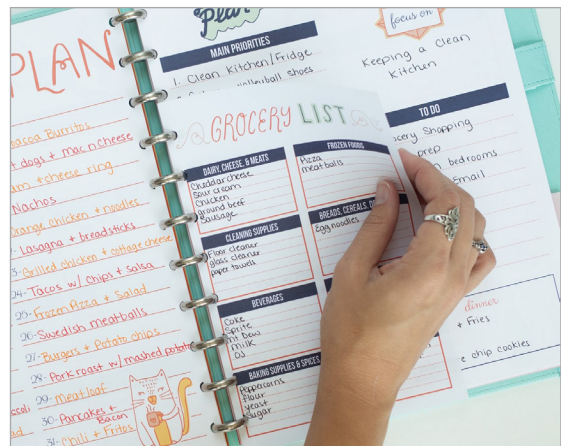 PLAN
Burritos
dogs + mac n cheese
+ cheese ring
Nachos
chicken + noodles
Lasagna + breadsticks
Grilled chicken + cottage cheese
24- Tacos w/ chips + salsa
25- Frozen Pizza + Salad
26- Swedish meatballs
27- Burgers + Potato chips
28- Pork roast w/ mashed
29- Meatloaf
30- Pancakes +
Bacon
31- Chili + Fritos
Plan
MAIN PRIORITIES
1. Clean Kitchen/Fridge
shoes
focus on
Keeping a Clean
Kitchen
TO DO
Shopping
prep
bedrooms
dinner
+ Fries
chip cookies
GROCERY LIST
DAIRY, CHEESE, & MEATS
Cheddar cheese
Sour cream
Chicken
ground beef
Sausage
FROZEN FOODS
Pizza
meatballs
CLEANING SUPPLIES
Floor cleaner
glass cleaner
paper towels
BREADS, CEREALS,
Egg noodles
BEVERAGES
Coke
Sprite
Mt Dew
Milk
OJ
BAKING SUPPLIES & SPICES
Peppercorns
flour
yeast
Sugar